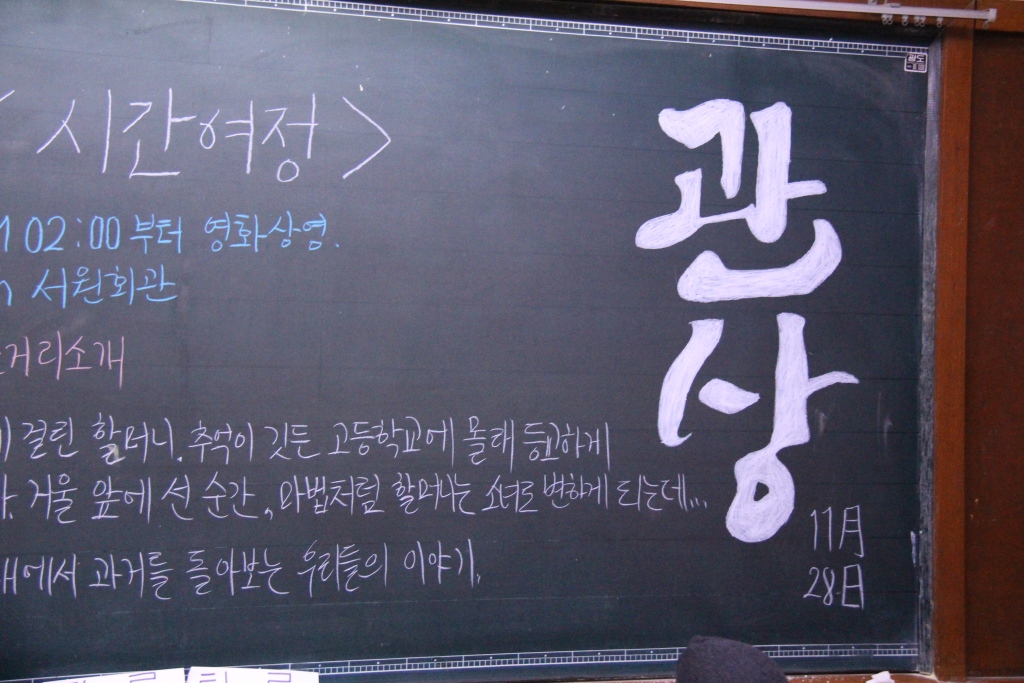 < 시간여정 >
02:00 부터 영화상영.
서원회관
거리소개
걸린 할머니. 추억이 깃든 고등학교에 몰래 등교하게
거울 앞에 선 순간, 마법처럼 할머니는 소녀로 변하게 되는데...
에서 과거를 돌아보는 우리들의 이야기.
관상
11月
28日